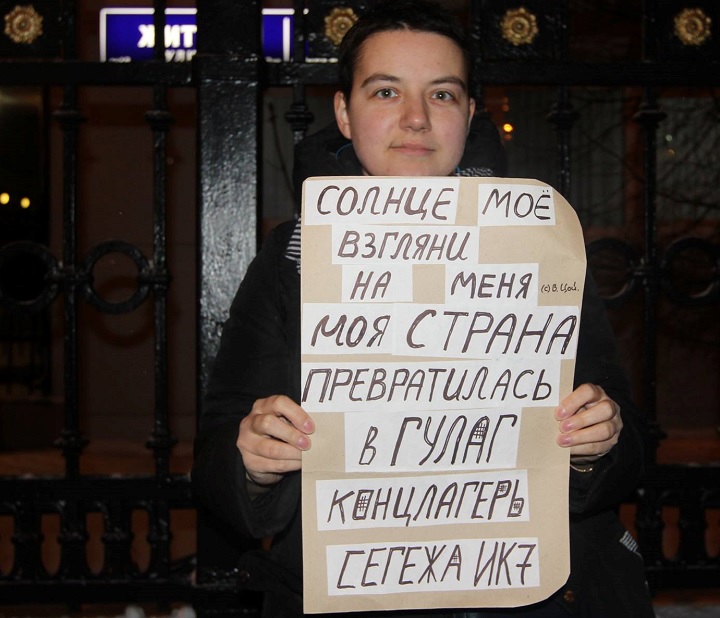 СОЛНЦЕ МОЁ
ВЗГЛЯНИ
НА МЕНЯ (с) В. Цой.
МОЯ СТРАНА
ПРЕВРАТИЛАСЬ
В ГУЛАГ
КОНЦЛАГЕРЬ
СЕГЕЖА ИК7